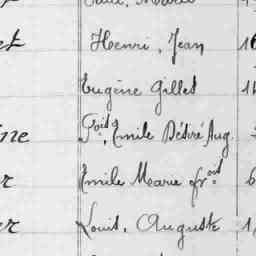 et Henri, Jean 16
Eugène Gillet 1
ne Fois, Emile Désiré Aug.
r Emile Marie frois 6
er Louis, Auguste 1